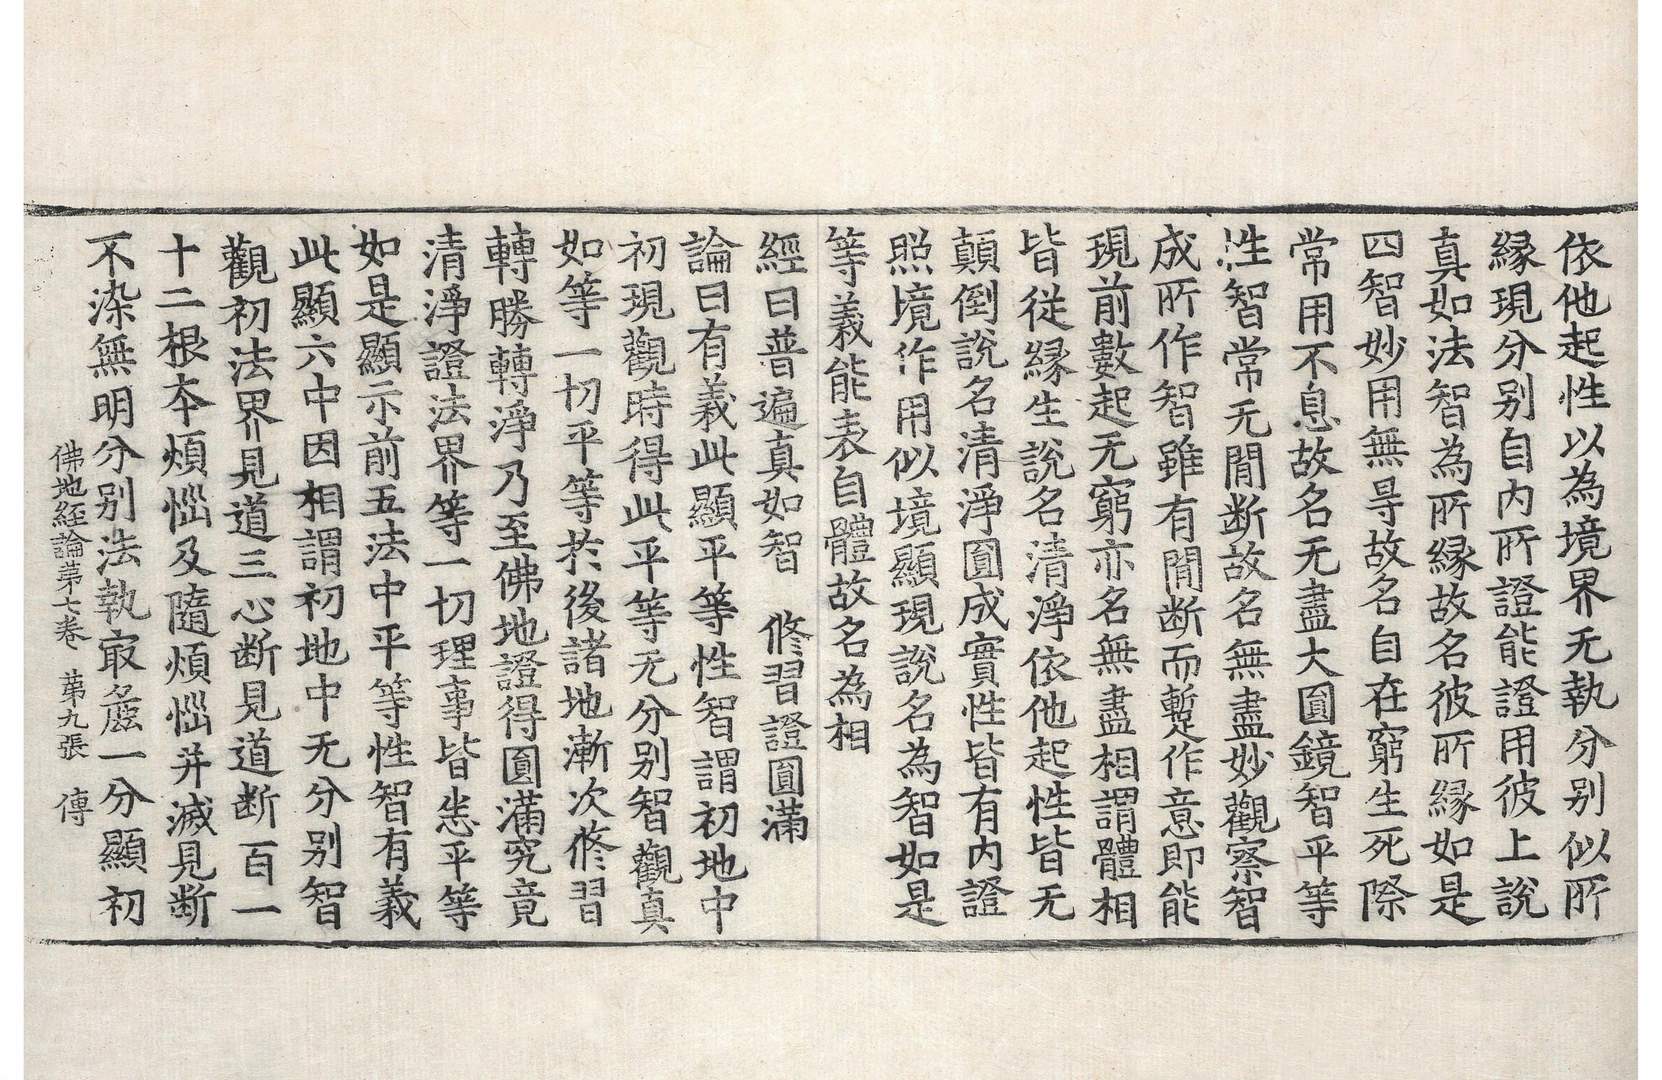 依他起性以為境界无執分別似所
縁現分別自内所證能證用彼上說
真如法智為所縁故名彼所縁如是
四智妙用無㝵故名自在窮生死際
常用不息故名无盡大圓鏡智平等
性智常无閒断故名無盡妙觀察智
成所作智雖有閒断而蹔作意即能
現前數起无窮亦名無盡相謂體相
皆從縁生說名清淨依他起性皆无
顛倒說名清淨圓成實性皆有内證
照境作用似境顯現說名為智如是
等義能表自體故名為相
經曰普遍真如智　修習證圓滿
論曰有義此顯平等性智謂初地中
初現觀時得此平等无分别智觀真
如等一切平等於後諸地漸次修習
轉勝轉淨乃至佛地證得圓滿究竟
清淨證法界等一切理事皆悉平等
如是顯示前五法中平等性智有義
此顯六中因相謂初地中无分别智
觀初法界見道三心断見道断百一
十二根本煩惱及隨煩惱并滅見断
不染無明分别法執最麁一分顯初
佛地經論第七卷　第九張　傳